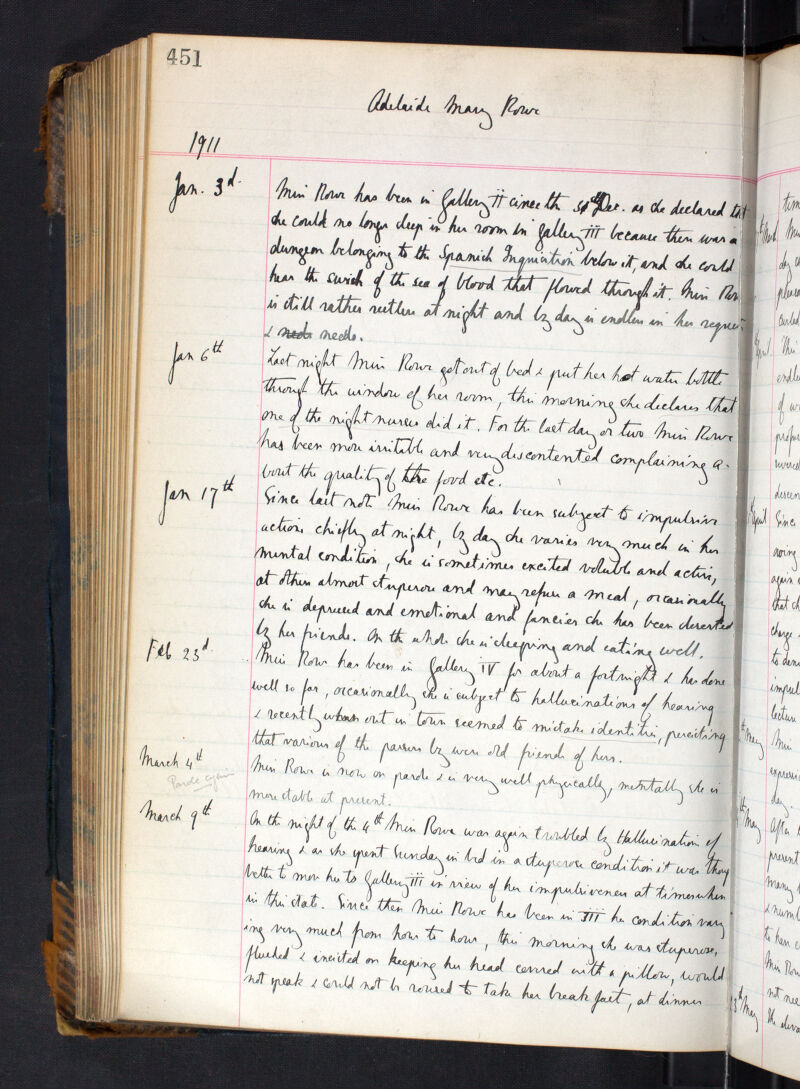 451
Adelaide Mary Rowe
1911
Jan. 3d. Miss Rowe has been in Gallery II since the Dec. as she declared that
she could no longer sleep in her room in Gallery III because there was a
dungeon belonging to the Spanish Inquisition below it, and she could
hear the swish of the sea of blood that flowed through it. Miss Rowe
is still rather restless at night and by day is endless in her requests
& needs.
Jan 6th Last night Miss Rowe got out of bed & put her hot water bottle
through the window of her room, this morning she declares that
one of the night nurses did it. For the last day or two Miss Rowe
has been more irritable and very discontented complaining a-
bout the quality of the food etc.
Jan 17th Since last note Miss Rowe has been subject to impulsive
actions chiefly at night, by day she varies very much in her
mental condition, she is sometimes excited voluble and active,
at others almost stuperose and may refuse a meal, occasionally
she is depressed and emotional and fancies she has been deserted
by her friends. On the whole she is sleeping and eating well.
Feb 23d. Miss Rowe has been in Gallery IV for about a fortnight & has done
well so far, occasionally she is subject to hallucinations of hearing
& recently when out in town seemed to mistake identities, perceiving
that various of the passers by were old friends of hers.
March 4th Miss Rowe is now on parole & is very well physically, mentally she is
Parole again
more stable at present.
March 9th On the night of the 4th Miss Rowe was again troubled by Hallucination of
hearing & as she spent Sunday in bed in a stuperose condition it was though
better to move her to Gallery III in view of her impulsiveness at times when
in this state. Since then Miss Rowe has been in III her condition vary
ing very much from hour to hour, this morning she was stuperose,
flushed & insisted on keeping her head covered with a pillow, would
not speak & could not be roused to take her breakfast, at dinner